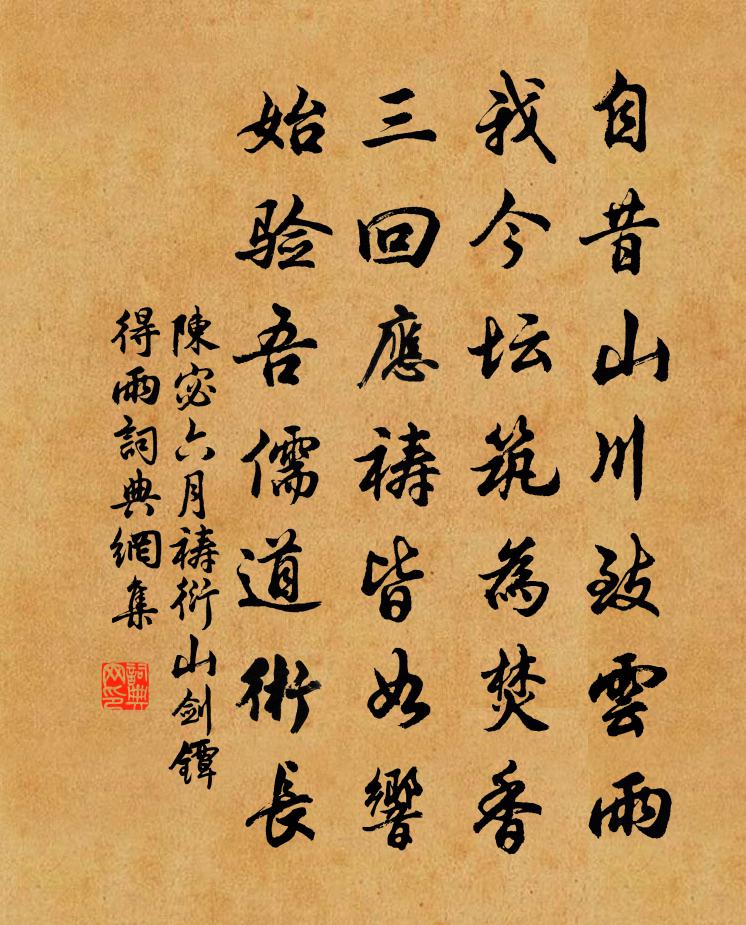 自昔山川致雲雨
我今坛筑為焚香
三回應禱皆如響
始验吾儒道術長
陳宓六月禱衍山劍鐔
得雨詞典網集
詞典網印